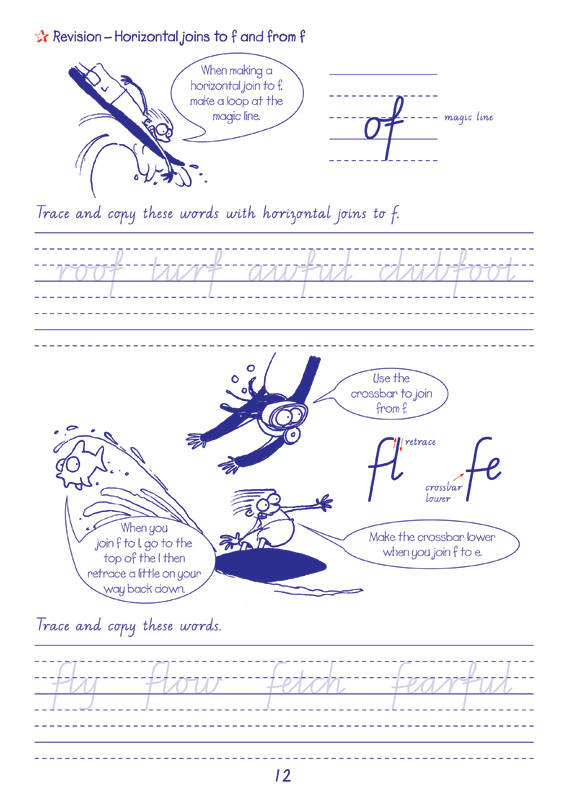 Revision – Horizontal joins to f and from f
When making a
horizontal join to f,
make a loop at the
magic line.
of
magic line
Trace and copy these words with horizontal joins to f.
roof turf awful clubfoot
Use the
crossbar to join
from f.
fl
retrace
fe
crossbar
lower
When you
join f to l, go to the
top of the l then
retrace a little on your
way back down.
Make the crossbar lower
when you join f to e.
Trace and copy these words.
fly flow fetch fearful
12